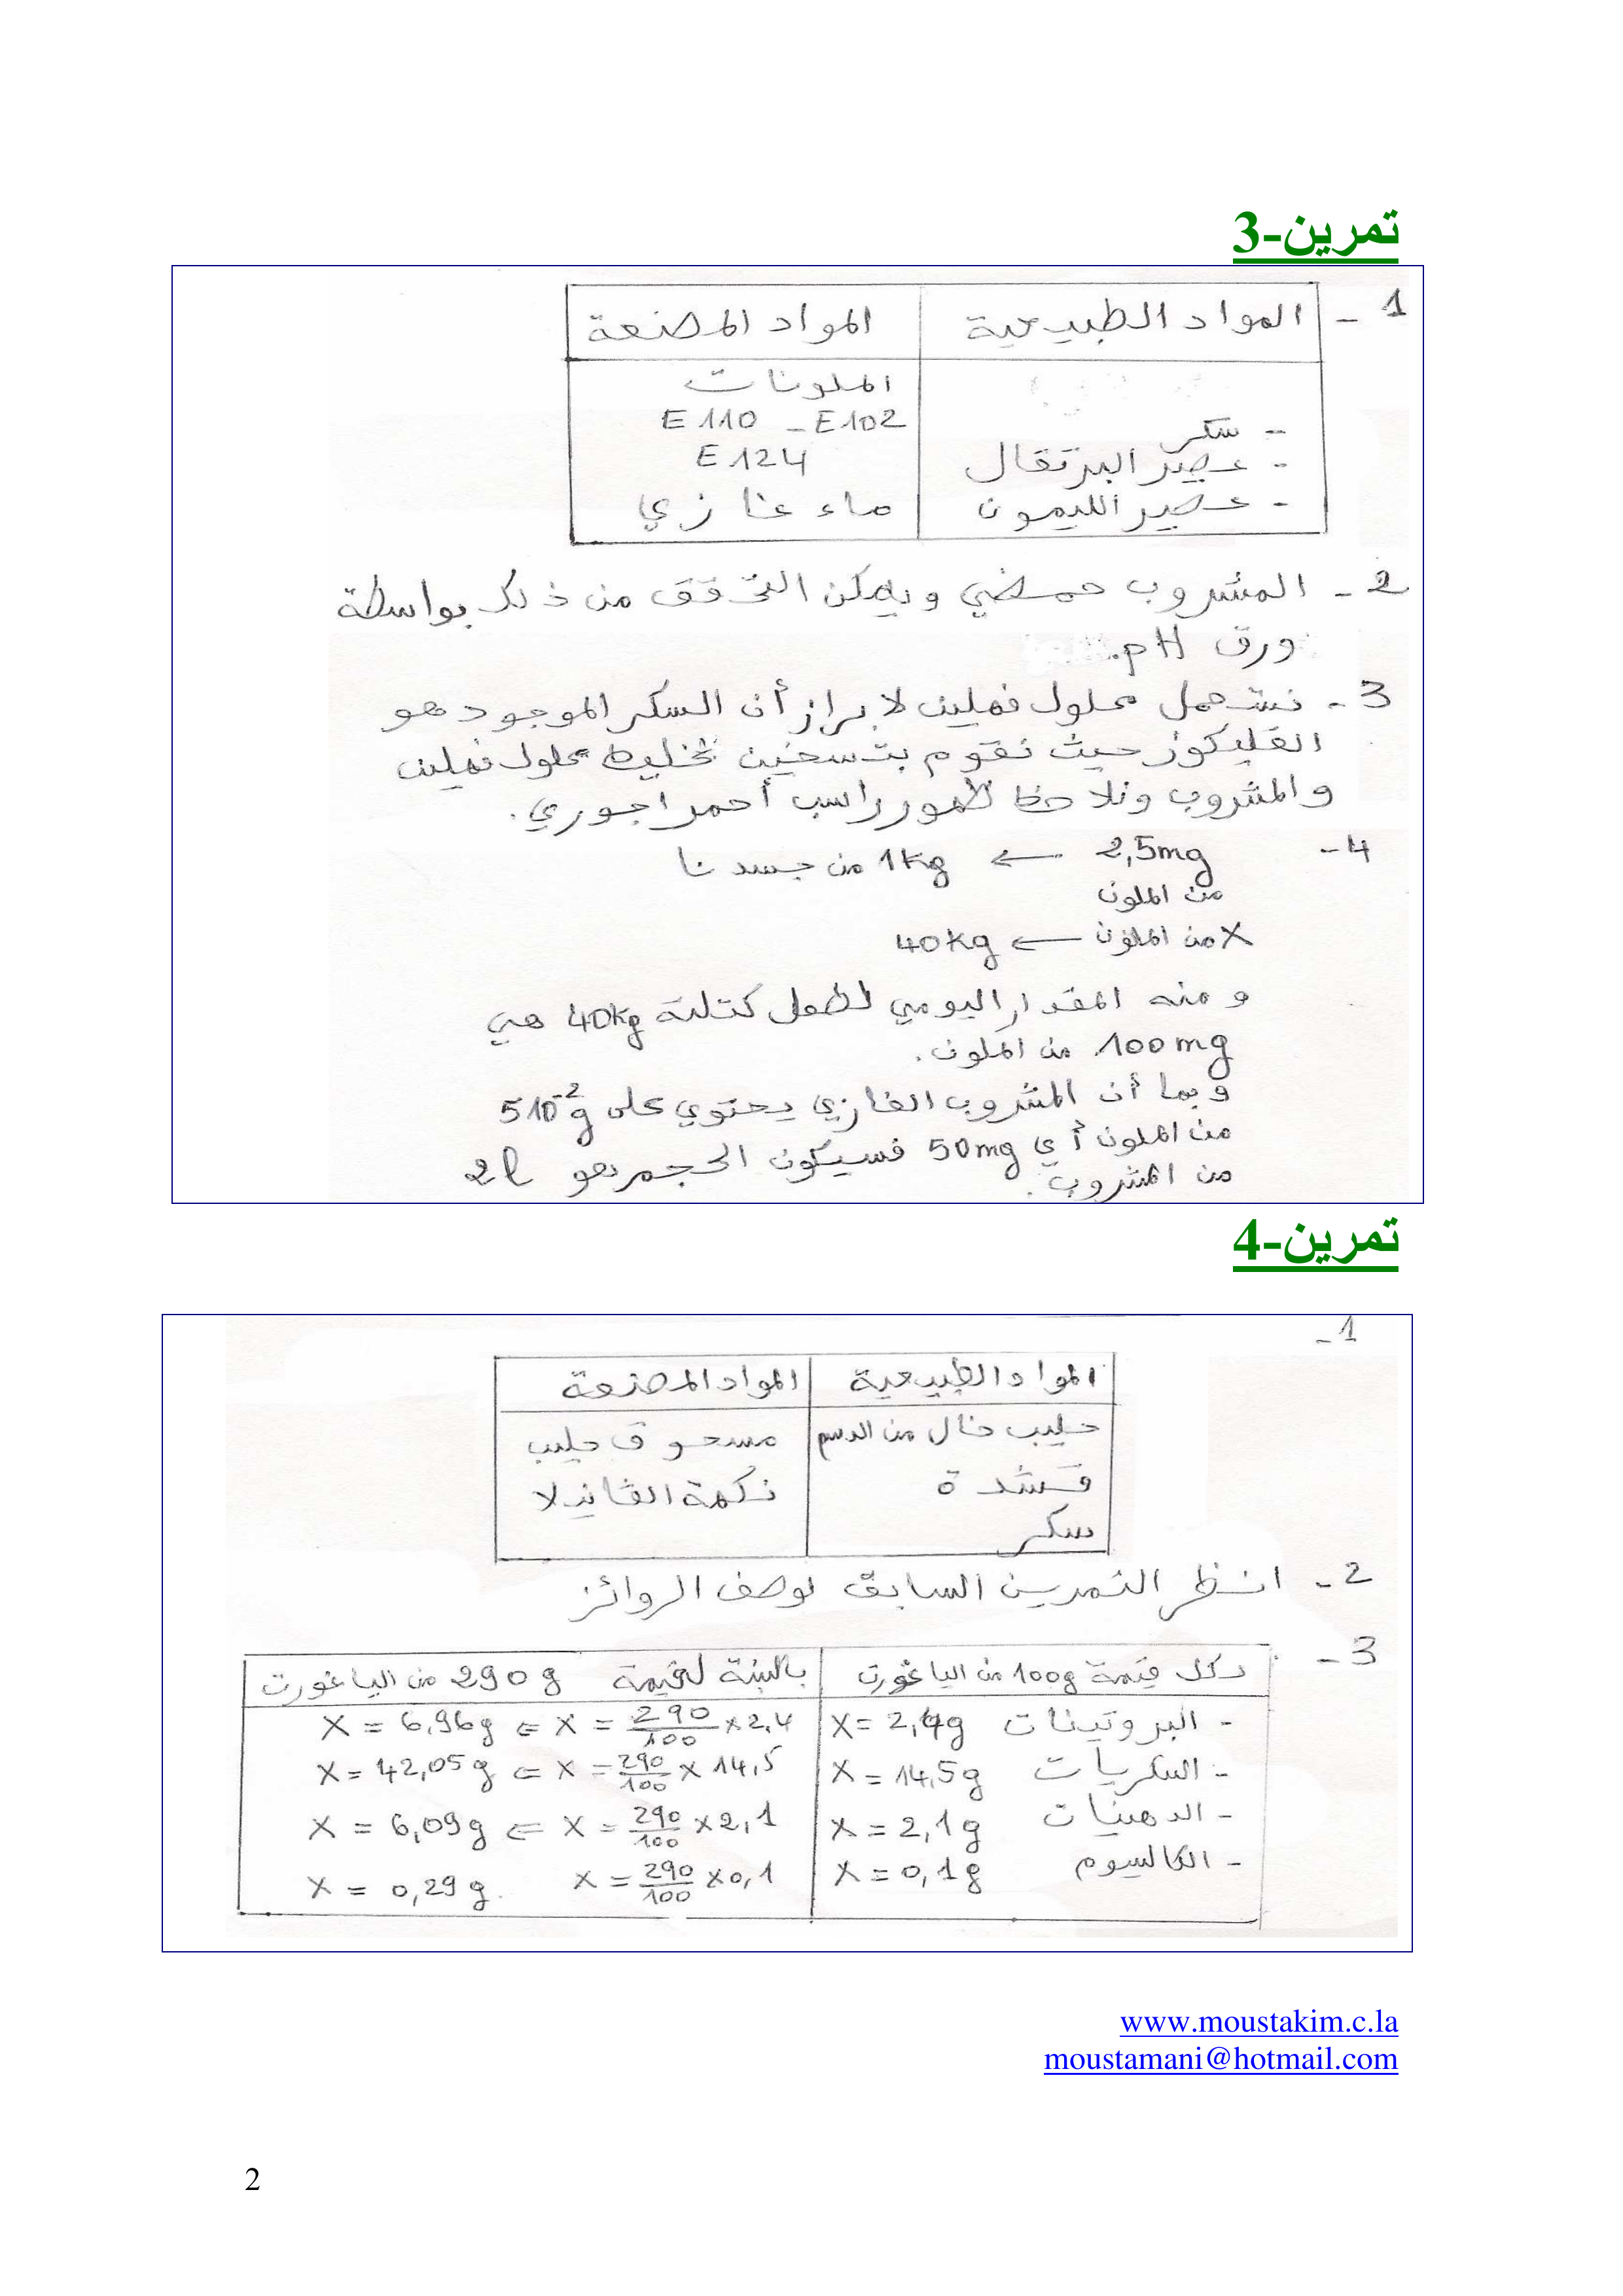 تمرين-3
1 -
المواد الطبيعية | المواد المصنعة
الملونات
E 110 - E102
- سكر
E 124
- عصير البرتقال
- عصير الليمون | ماء غازي
2 - المشروب حمضي ويمكن التحقق من ذلك بواسطة
ورق pH.
3 - نستعمل محلول فهلين لابراز أن السكر الموجود هو
الغليكوز حيث نقوم بتسخين خليط محلول فهلين
والمشروب ونلاحظ ظهور راسب أحمر اجوري.
4 -
2,5mg ← 1Kg من جسدنا
من الملون
X من الملون ← 40Kg
ومنه المقدار اليومي لطفل كتلته 40Kg هي
100 mg من الملون.
وبما أن المشروب الغازي يحتوي على 5 10⁻² g
من الملون أي 50mg فسيكون الحجم هو 2l
من المشروب.
تمرين-4
1 -
المواد الطبيعية | المواد المصنعة
حليب خال من الدسم | مسحوق حليب
قشدة | نكهة الڤانيلا
سكر
2 - انظر التمرين السابق لوصف الروائز
3 -
لكل قيمة 100g من الياغورت | بالنسبة لقيمة 290g من الياغورت
- البروتينات X = 2,4g | X = 290/100 x 2,4 ⇐ X = 6,96g
- السكريات X = 14,5g | X = 290/100 x 14,5 ⇐ X = 42,05g
- الدهنيات X = 2,1g | X = 290/100 x 2,1 ⇐ X = 6,09g
- الكالسيوم X = 0,1g | X = 290/100 x 0,1 X = 0,29g.
www.moustakim.c.la
moustamani@hotmail.com
2